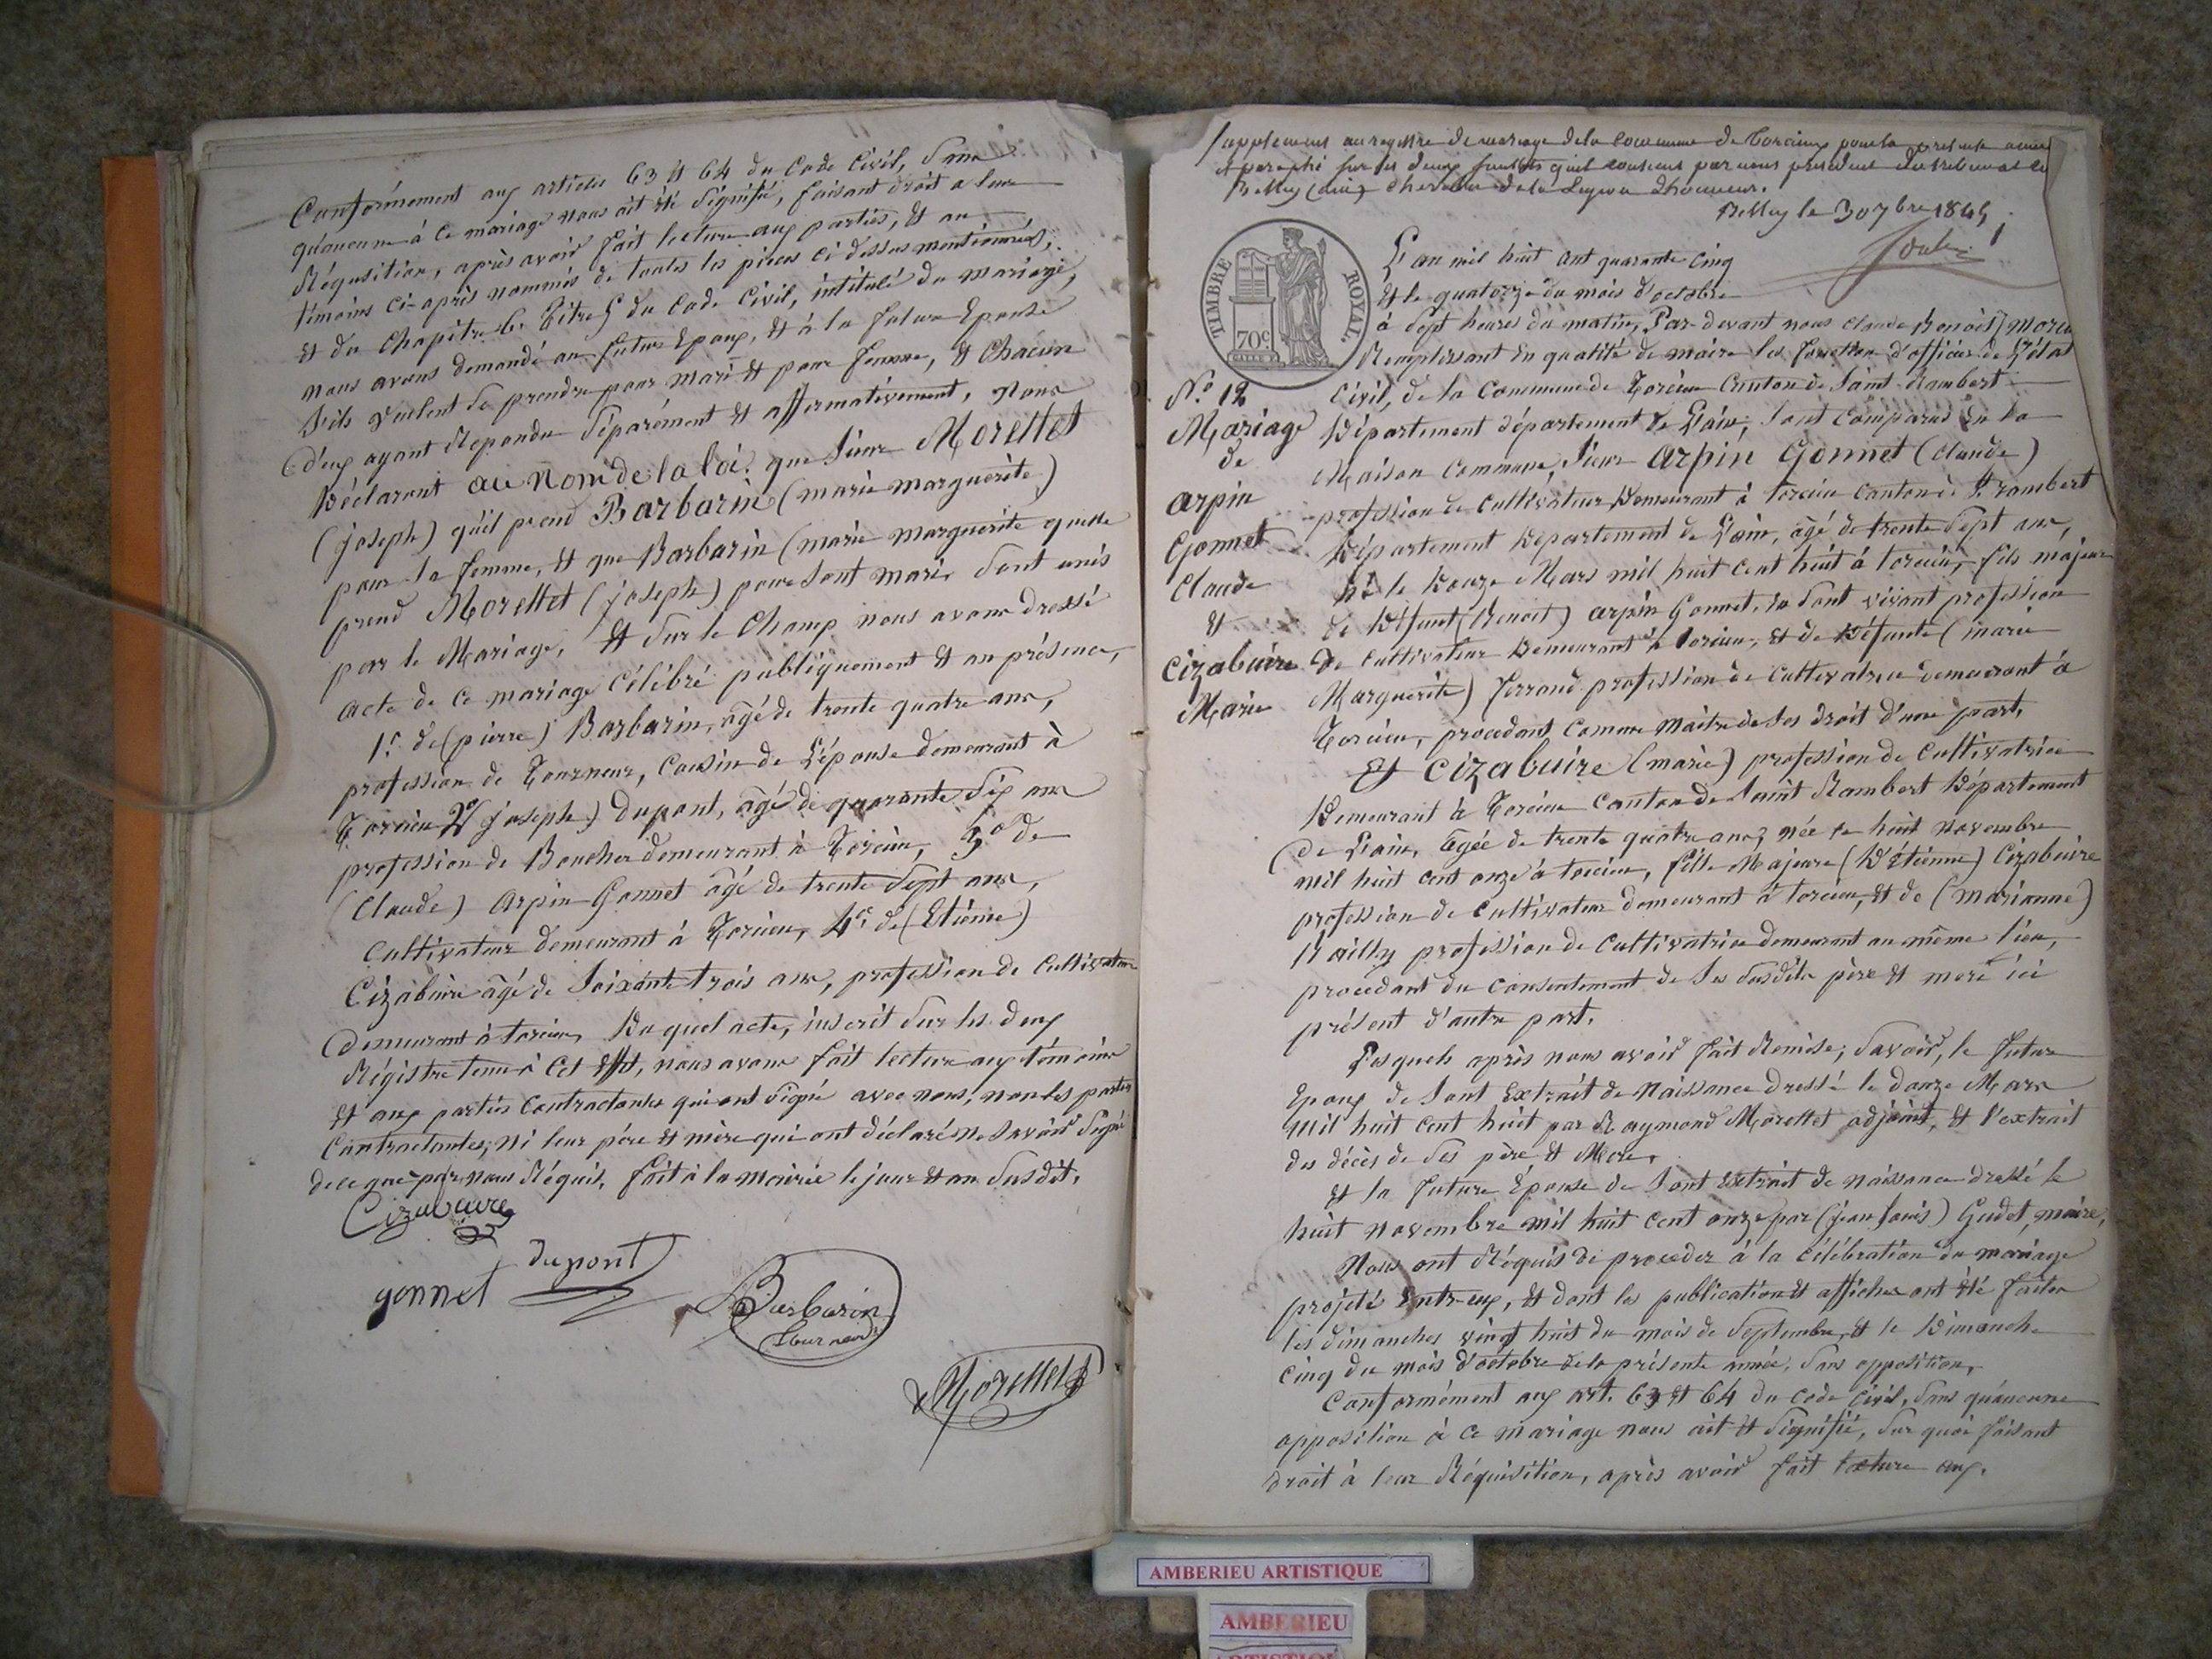 Conformément aux articles 63 et 64 du Code Civil, sans
qu'aucune à ce mariage nous ait été signifié, faisant droit a leur
Réqusition, après avoir fait lecture aux parties, et au
témoins ci-après nommés de toutes les pièces ci dessus mentionnées,
et du Chapitre 6. Titre 5 du Code Civil, intitulé du mariage,
nous avons demandé au futur Epoux, et à la future Epouse
s'ils veulent se prendre pour mari et pour femme, et Chacun
d'eux ayant Répondu Séparément et affirmativement, Nous
Déclaront au Nom de la loi. que Sieur Morettet
(joseph) qu'il prend Barbarin (marie marguerite)
pour sa femme, et que Barbarin (marie marguerite quelle
prend Morettet (joseph) pour sont mari. Sont unis
par le Mariage, et sur le Champ nous avons dressé
acte de ce mariage célébré publiquement et au présence,
1.º de (pierre) Barbarin, âgé de trente quatre ans,
profession de Tourneur, Cousin de L'épouse demeurant à
Torcieu 2º joseph) Dupont, âgé de quarante six ans
profession de Boucher demeurant à Torcieu, 3º de
(Claude) Arpin Gonnet âgé de trente sept ans,
Cultivateur demeurant à Torcieu, 4º de (Etienne)
Cizabuire âgé de soixante trois ans, profession de Cultivateur
demeurant à torcieu, Du quel acte, inscrit sur les deux
Régistre tenu à Cet effet, nous avons fait lecture aux témoins
et aux parties Contractantes qui ont signé avec nous, non les parties
Contractantes, ni leur père et mère qui ont déclaré ne savoir signé
de ce que par nous Réquis, fait à la mairie le jour et an susdit.
Cizabuire
dupont
gonnet
Barbarin
tourneur
Morettet
supplement au registre de mariage de la commune de Torcieu pour la presente année
et paraphé sur les deux feuillets quil contient par nous president du tribunal de
Belley (ain) chevalier de la Legion dhonneur.
Belley le 30 7bre 1845
TIMBRE ROYAL
70c
L'an mil huit cent quarante cinq
Et le quatorze du mois d'octobre
à sept heures du matin, Par-devant nous Claude Benoit Moret
Remplissant en qualité de maire les fonction d'officier de L'état
Civil, de la Commune de Torcieu Canton de Saint Rambert
Département département de L'ain, sont comparus en la
Maison Commune, Sieur Arpin Gonnet (Claude)
profession de Cultivateur Demeurant à torcieu Canton de St. rambert
Département Département de L'ain, âgé de trente sept ans,
né le Douze Mars mil huit cent huit à torcieu, fils majeur
de Défunt (Benoit) arpin Gonnet, en sont vivant profession
de Cultivateur Demeurant à torcieu, et de Défunte (marie
Marguerite) ferrand profession de Cultivatrice demeurant à
Torcieu, procédant Comme maitre de ses droit d'une part,
Nº. 12
Mariage
de
arpin
Gonnet
Claude
et
Cizabuire
Marie
Et Cizabuire (marie) profession de Cultivatrice
Demeurant à Torcieu Canton de Saint Rambert Département
de L'ain, âgée de trente quatre ans, née le huit Novembre
mil huit cent onze à torcieu, fille Majeure (D'étienne) Cizabuire
profession de Cultivateur demeurant à torcieu, et de (Marianne)
profession de Cultivatrice demeurant au même lieu,
procedant du Consentement de ses susdits père et mere ici
présent d'autre part.
Lesquels après nous avoir fait Remise; savoir, le futur
Epoux de sont Extrait de Naissance dressé le douze Mars
mil huit cent huit par Raymond Morettet adjoint, et l'extrait
des décès de ses père et Mere,
et la future Épouse de sont extrait de naissance dressé le
huit novembre mil huit cent onze par (jean louis) Gudet, maire,
Nous ont Réquis de proceder à la Célébration du mariage
projeté entr-eux, et dont les publication et affiches ont été faites
les dimanches vingt huit du mois de Septembre, et le Dimanche
cinq du mois d'octobre de la présente année, sans opposition,
Conformément aux art. 63 et 64 du Code Civil, sans qu'aucune
opposition à ce mariage nous ait et signifié, sur quoi faisant
droit à leur Réquisition, après avoir fait lecture aux.
AMBERIEU ARTISTIQUE
AMBERIEU
ARTISTIQUE